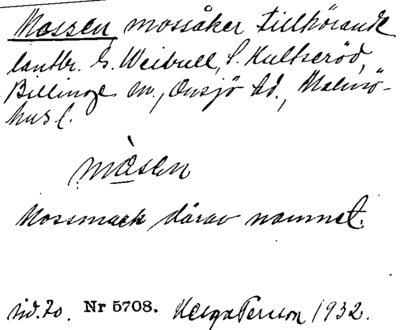 Mossen mossåker tillhörande
lantbr. E. Weibull, S. Hultseröd,
Billinge sn, Onsjö hd., Malmö-
hus l.
måsen
Mossmark därav namnet.
sid. 20. Nr 5708. Helga Persson 1932.